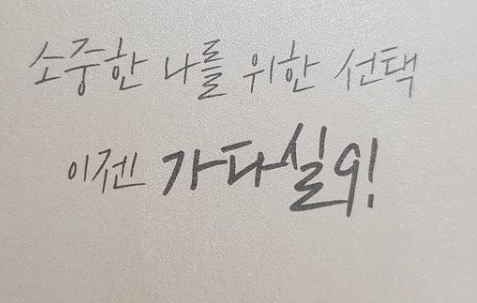 소중한 나를 위한 선택
이젠 가다실9!